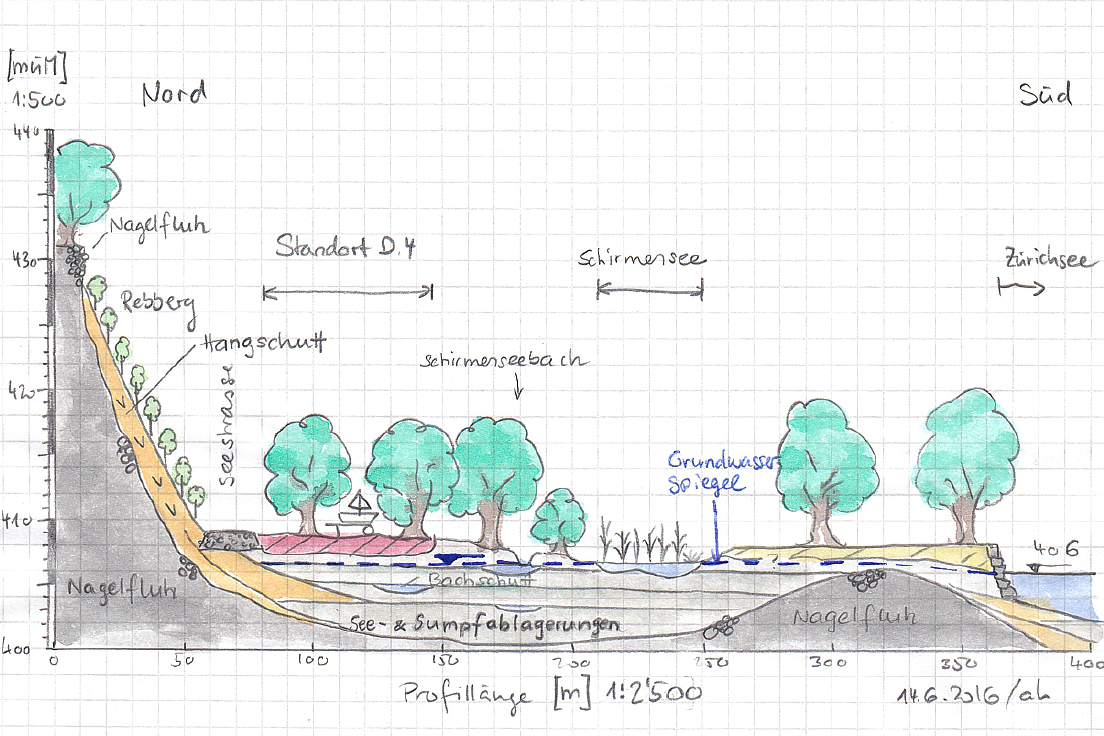 [müM]
1:500
Nord
Süd
440
Nagelfluh
Standort D.4
Schirmensee
Zürichsee
430
Rebberg
Hangschutt
Schirmenseebach
420
Seestrasse
Grundwasser
Spiegel
410
406
Bachschutt
Nagelfluh
See- & Sumpfablagerungen
Nagelfluh
400
0 50 100 150 200 250 300 350 400
Profillänge [m] 1:2'500
14.6.2016/ah